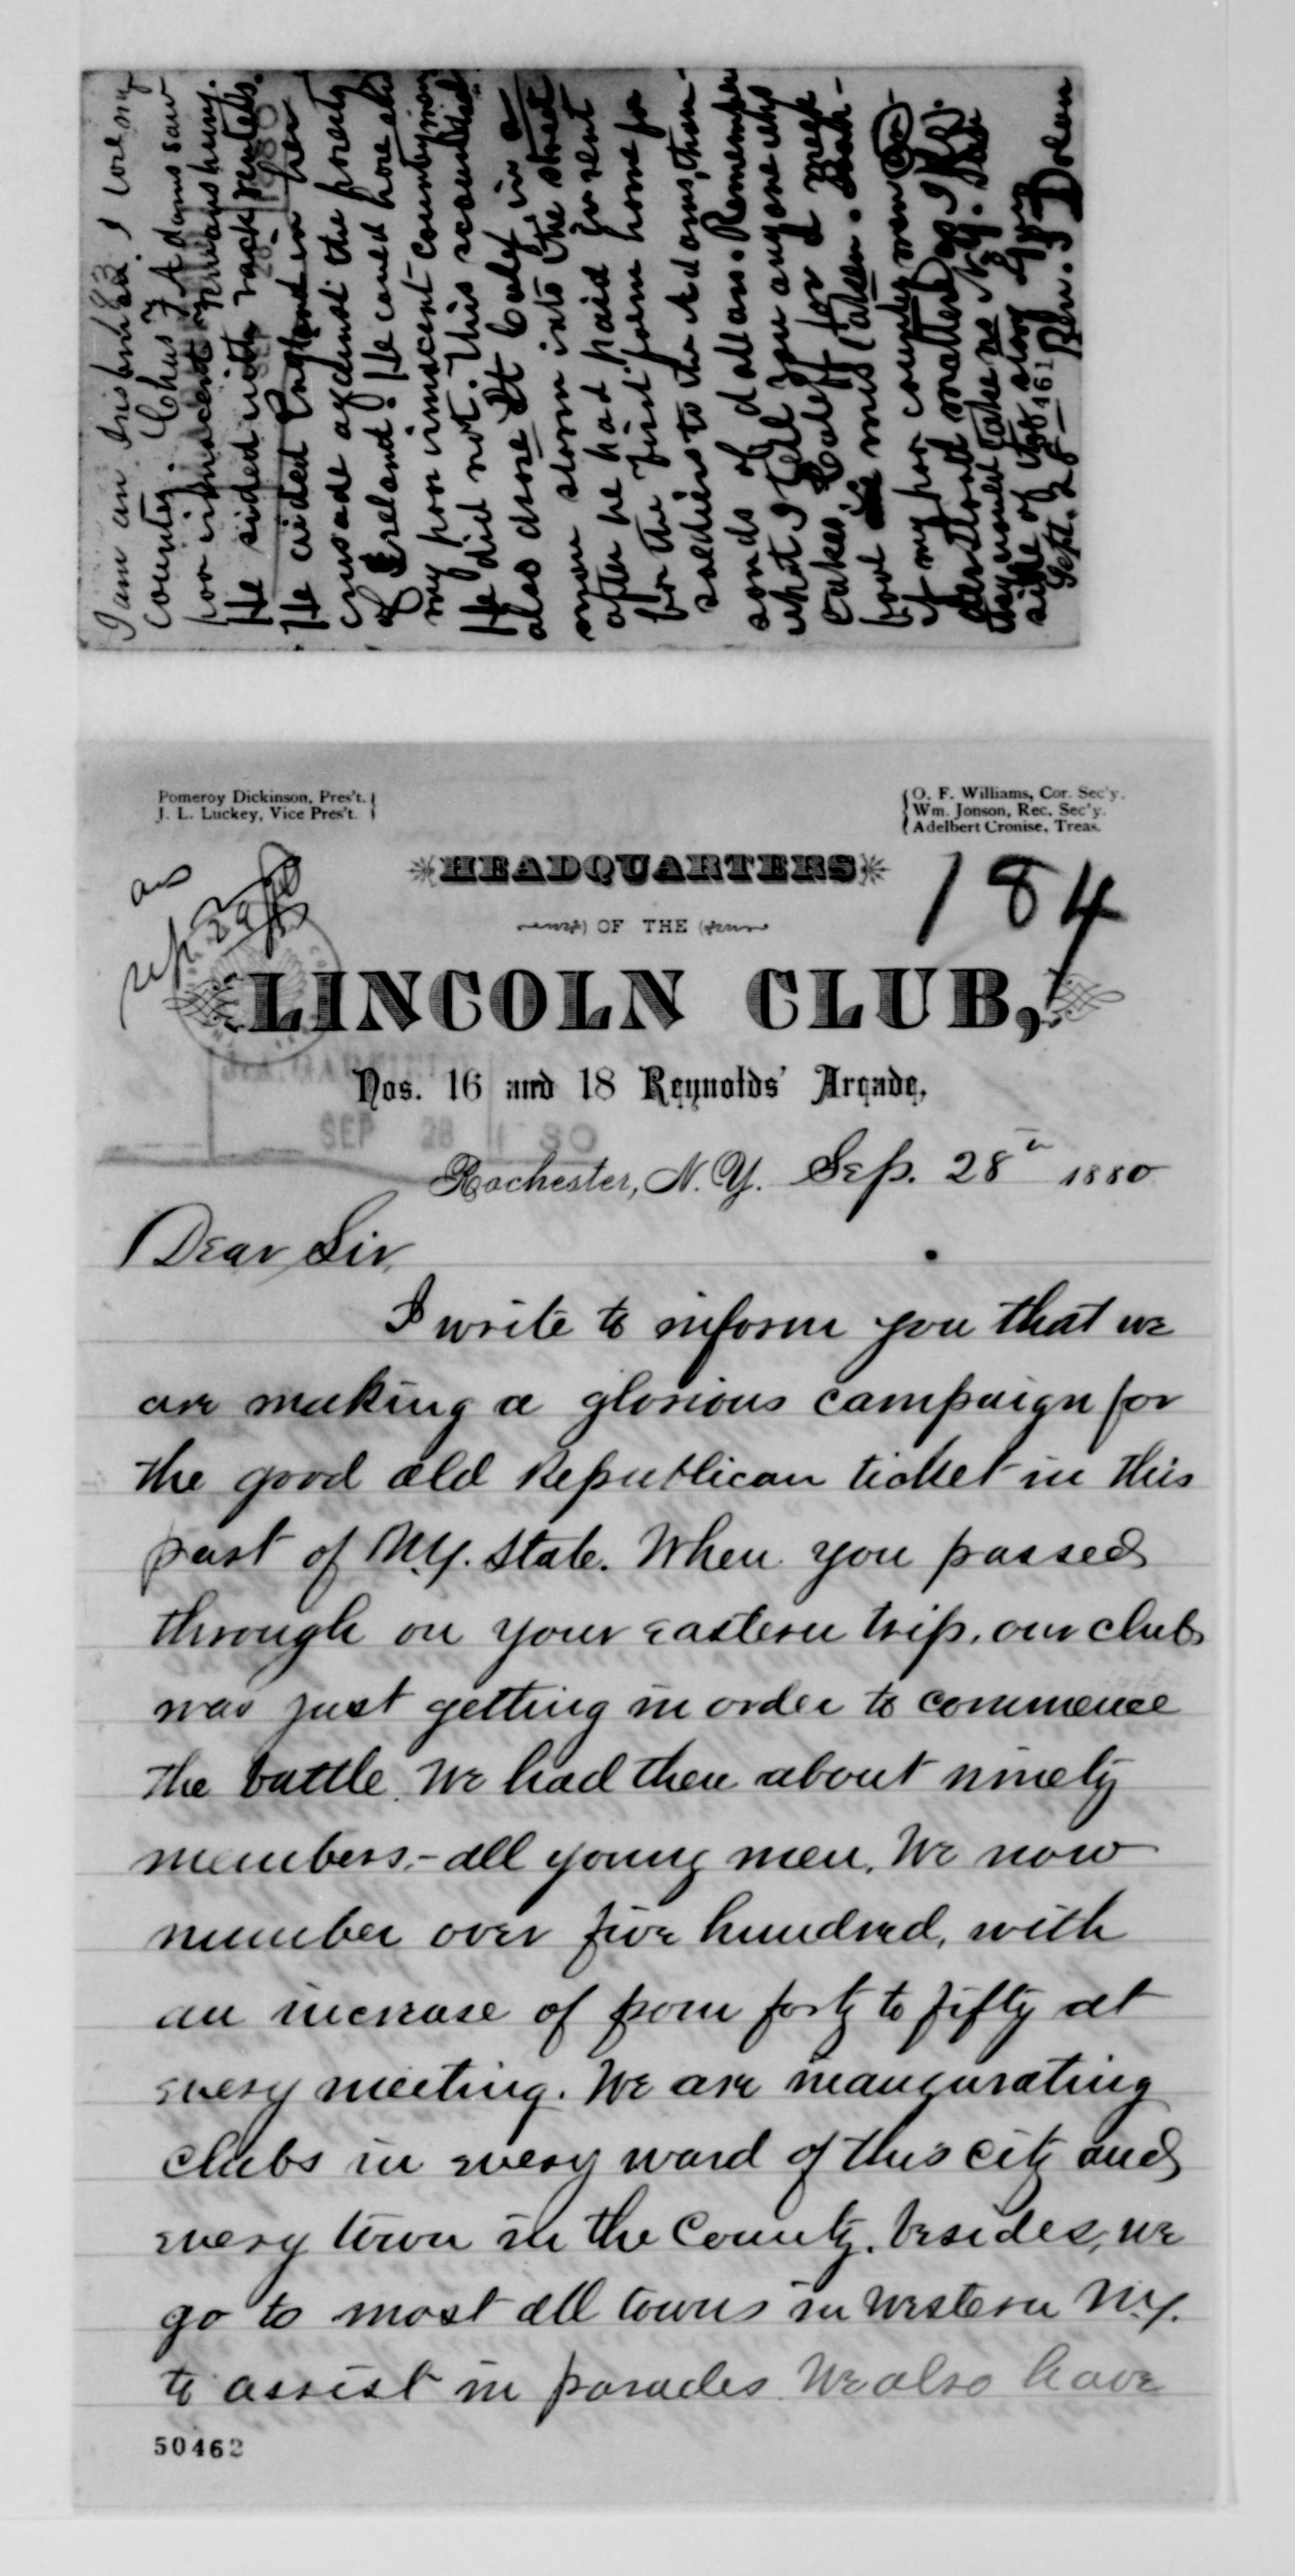 I am an Irishman. I love my
country. Chas F Adams saw
poor innocent Irishmen hung.
He sided with rack rentels.
He aided England in her
crusade against the poverty
of Ireland. He could have
my poor innocent countrymen
He did not. This scoundrel
also drove Lt Calef in a
snow storm into the street
after he had paid in rent
for the first poem home for
soldiers to the Adams, thou-
sands of dollars. Remember
what I tell you anyone who
takes Caleff for a meek
fool is mistaken. Look
at my poor countrymen
understand matters as I do.
they would take no N.Y.
side of the story
Sept. 28 Ben. J Dolan
50461
Pomeroy Dickinson, Pres't.
J. L. Luckey, Vice Pres't.
O. F. Williams, Cor. Sec'y.
Wm. Jonson, Rec. Sec'y.
Adelbert Cronise, Treas.
HEADQUARTERS
184
OF THE
LINCOLN CLUB,
Nos. 16 and 18 Reynolds' Arcade,
SEP 28 1880
Rochester, N. Y. Sep. 28th 1880
Dear Sir,
I write to inform you that we
are making a glorious campaign for
the good old Republican ticket in this
part of N.Y. State. When you passed
through on your eastern trip, our club
was just getting in order to commence
the battle. We had then about ninety
members,- all young men. We now
number over five hundred, with
an increase of from forty to fifty at
every meeting. We are inaugurating
clubs in every ward of this city and
every town in the County. besides, we
go to most all towns in Western N.Y.
to assist in parades. We also have
50462